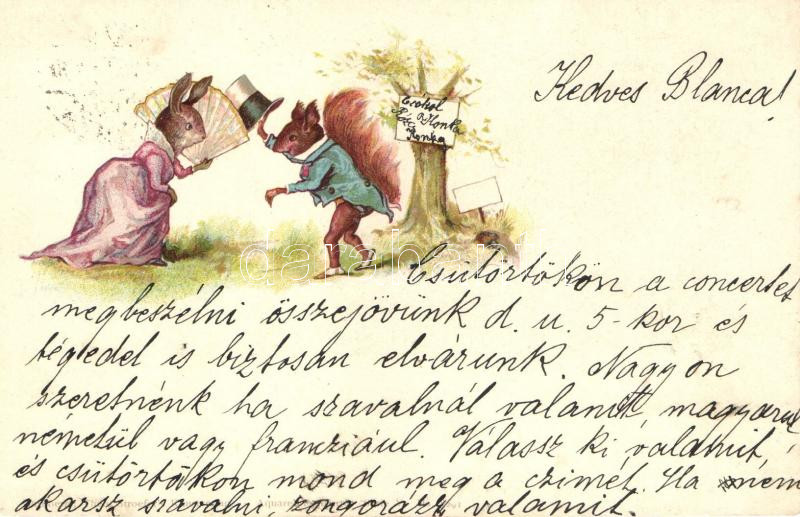 Kedves Blanca!
Csókol
Ilonka
Csütörtökön a concertet
megbeszélni összejövünk d. u. 5-kor és
tégedet is biztosan elvárunk. Nagyon
szeretnénk ha szavalnál valamit, magyarul
németül vagy francziául. Válassz ki valamit,
és csütörtökön mond meg a czimét. Ha nem
akarsz szavalni, zongorázz valamit.
darabanth